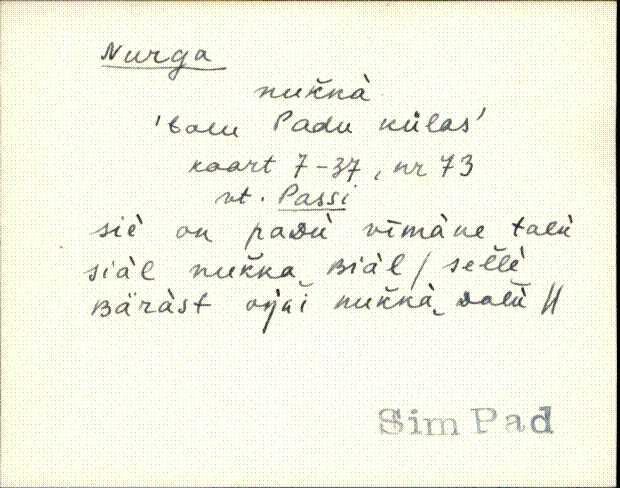 Nurga
nuk̆kà
'talu Padu külas'
kaart 7-37, nr 73
vt. Passi
siè on paᴅù vīmàne talù
siàl nuk̆ka ʙiàl / sel̆lè
ʙäràst
nuk̆kà ᴅalù //
Sim Pad